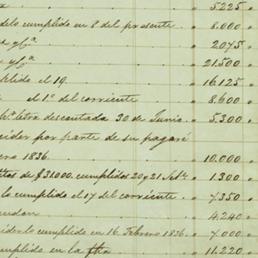 5225
dolo cumplido en 8 del presente 8.000
2075
21.500
plido el 19. 16.125
el 1º del corriente 8.600
letra descontada 30 de Junio 5.300
cidor por parte de su pagaré
ero 1836. 10.000
ttas de $31000 cumplidas 20 y 21 1.300
lo cumplido el 17 del corriente 7350
4.240
cumplido en 16 Febrero 1836. 7.000
umplido en la fha 11.220